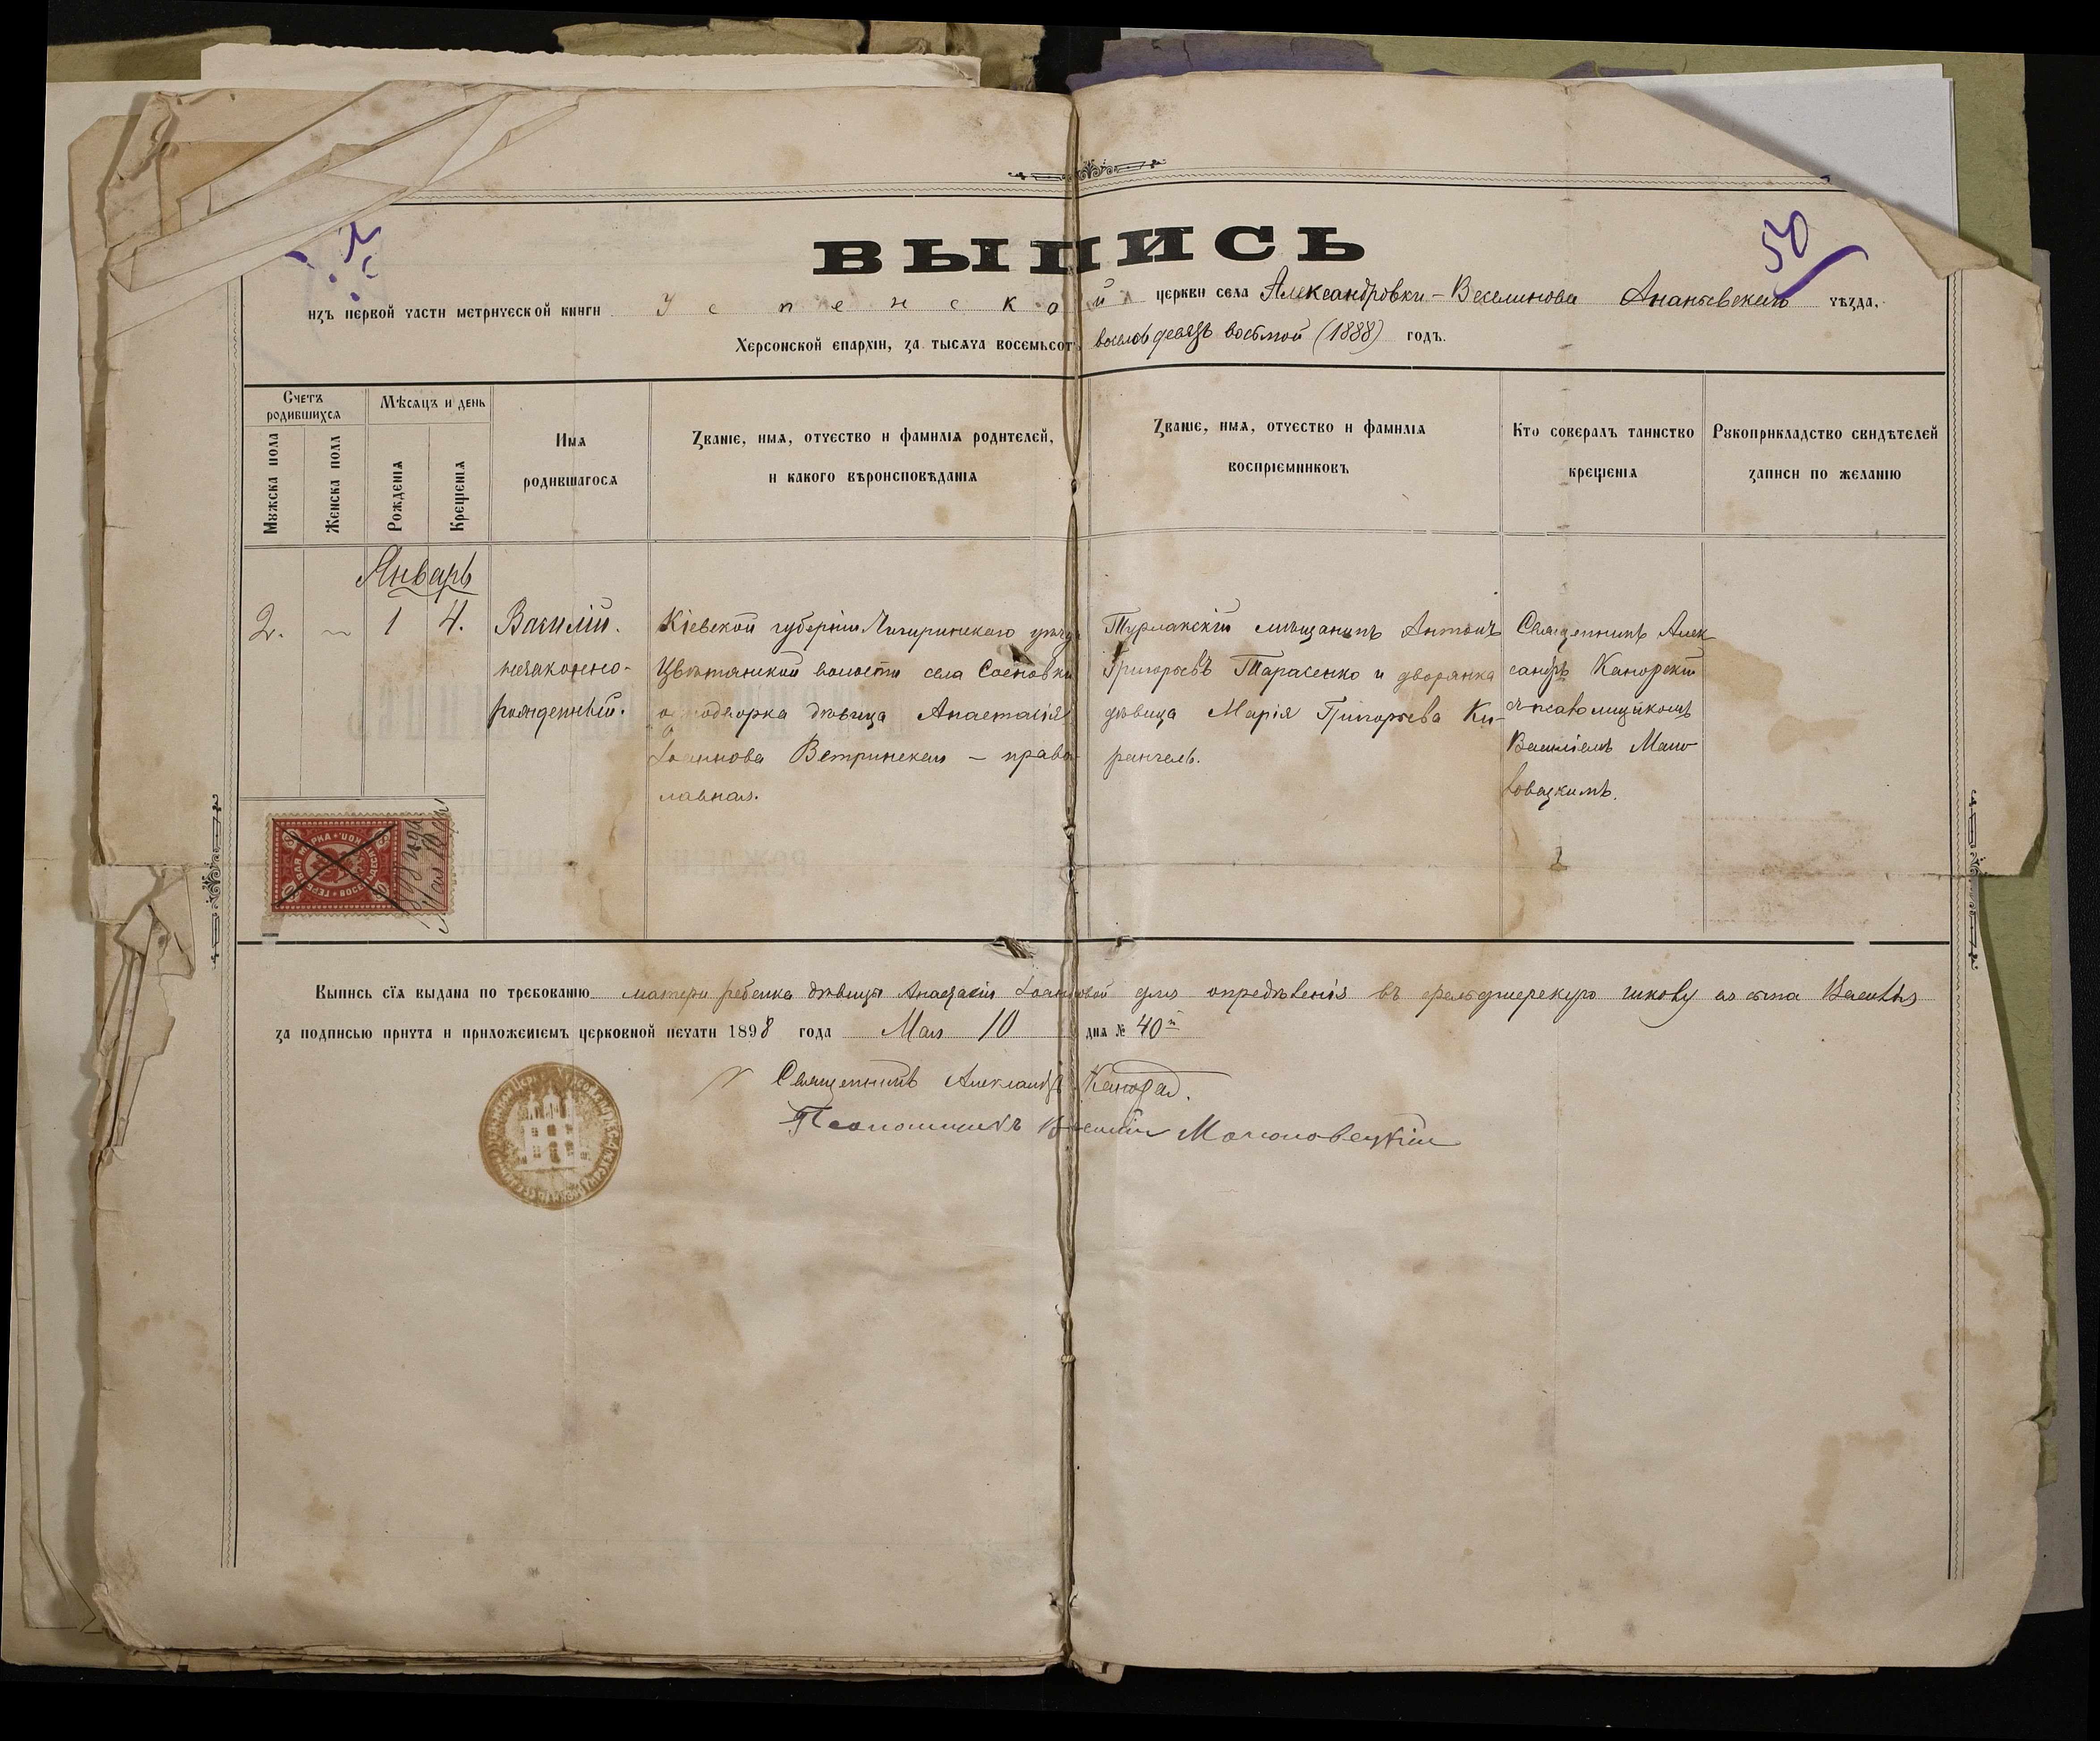 50
ВЫПИСЬ
изъ первой части метрической книги Успенской церкви села Александровки-Веселинова Ананьевскаго уѣзда,
Херсонской епархіи, за тысяча восемьсотъ восемьдесятъ восьмой (1888) годъ.
Счетъ родившихся
Мѣсяцъ и день
Мужска пола
Женска пола
Рожденія
Крещенія
Имя
родившагося
Званіе, имя, отчество и фамилія родителей,
и какого вѣроисповѣданія
Званіе, имя, отчество и фамилія
воспріемниковъ
Кто соверал таинство
крещенія
Рукоприкладство свидѣтелей
записи по желанію
Январь
2.
1
4.
Василій.
незаконно-
рожденный.
Кіевской губерніи Чигиринскаго уѣзда
Цвѣтянской волости села Сосновки
однодворка дѣвица Анастасія
Іоаннова Ветринская - право-
лавная.
Турлакскій мѣщанинъ Антонъ
Григорьевъ Тарасенко и дворянка
дѣвица Марія Григорьева Ки-
ранчель.
Священникъ Алек
сандръ Канорскій
съ псаломщикомъ
Василіемъ Мано
ловецкимъ.
ГЕРБОВАЯ МАРКА ВОСЕМЬДЕСЯТЪ КОП.
80
1898 года
Мая 10 дня
Выпись сія выдана по требованію матери ребенка дѣвицы Анастасіи Іоанновой для опредѣленія въ фельдшерскую школу ея сына Василія
за подписью причта и приложеніемъ церковной печати 1898 года Мая 10 дня № 40й
Священникъ Александръ
Псаломщикъ Василій